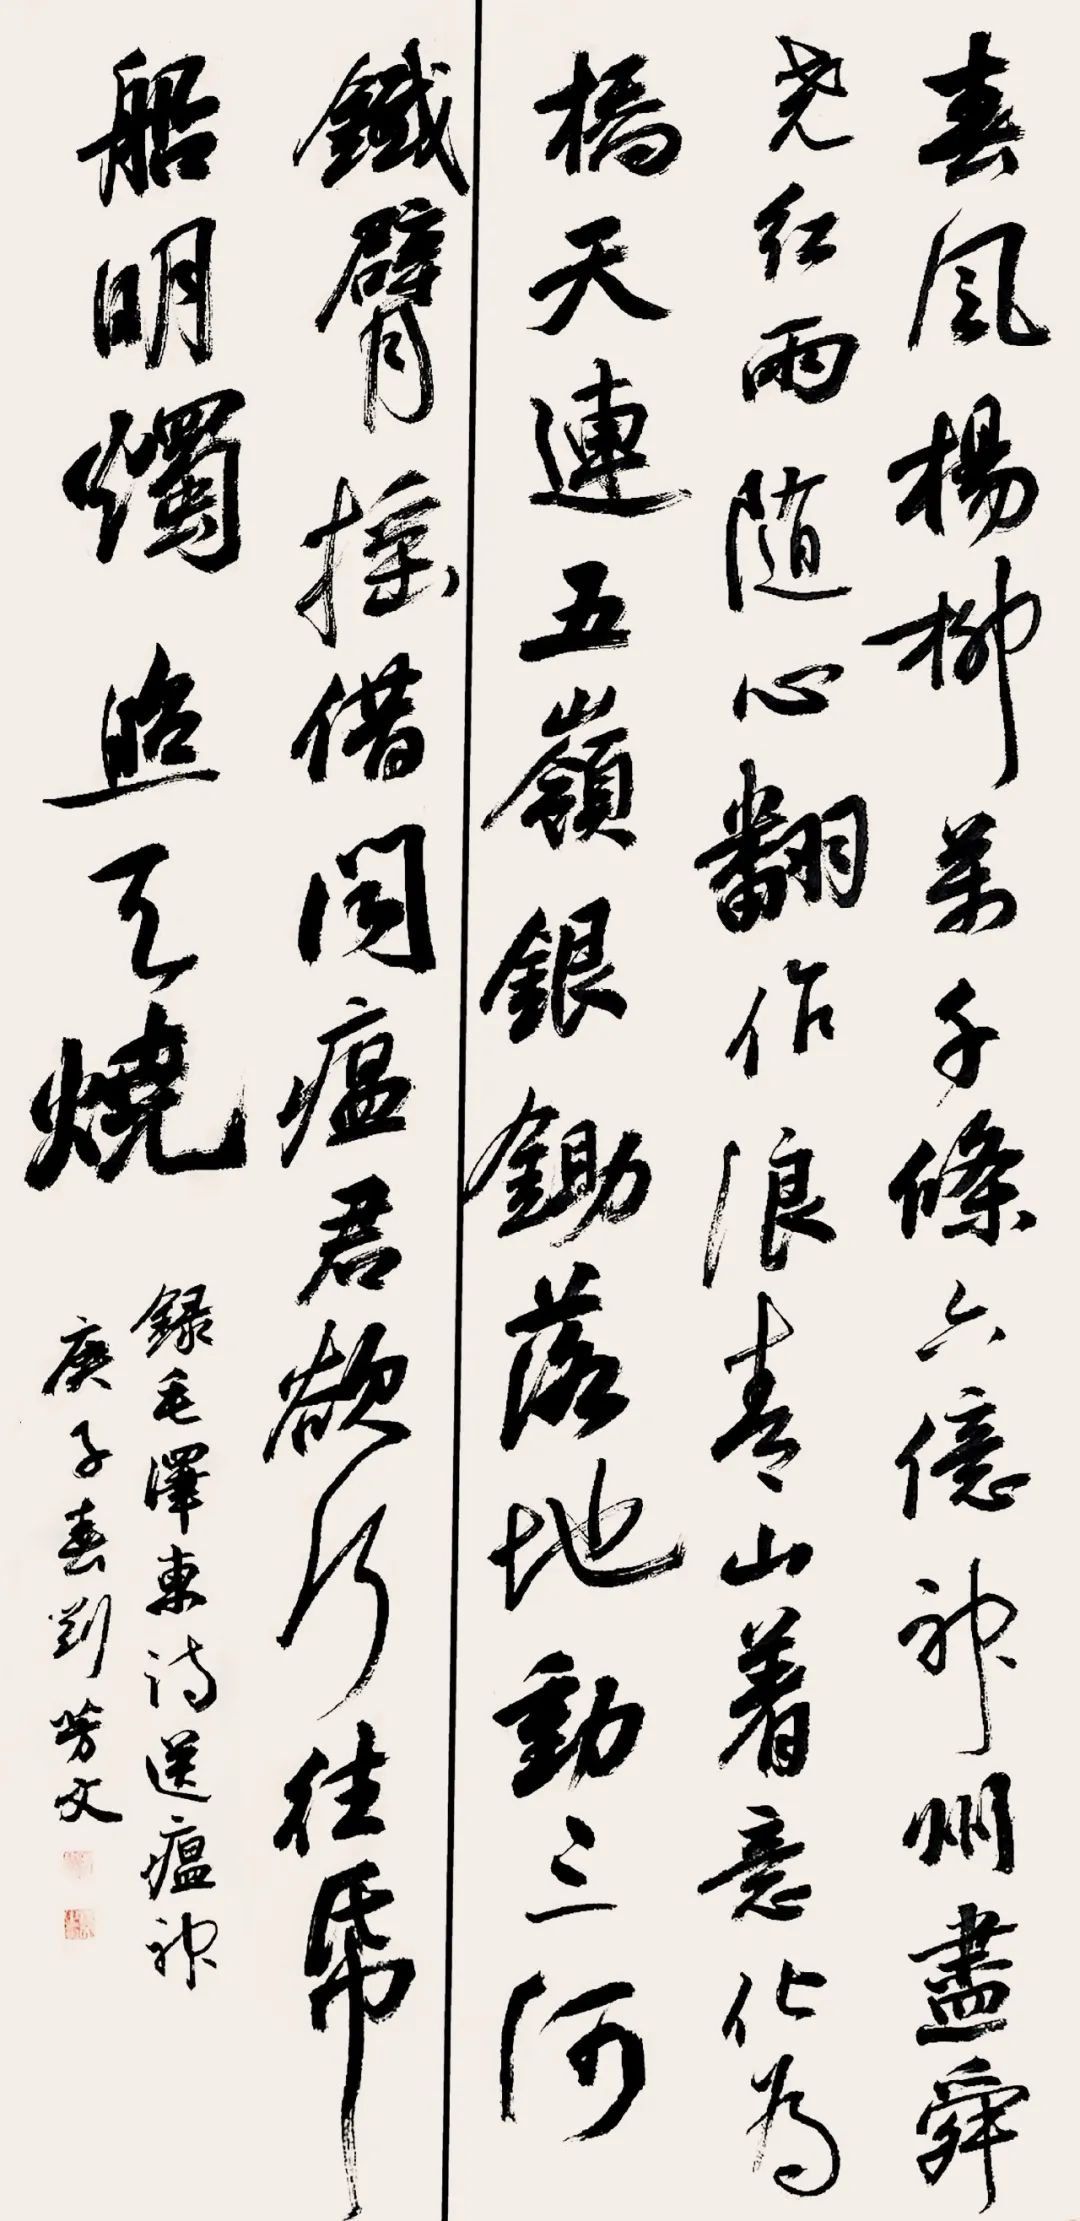 春風楊柳萬千條六億神州盡舜
尧红雨随心翻作浪青山着意化为
橋天連五嶺銀鋤落地動三河
鐵臂摇借问瘟君欲何往帋
船明燭照天燒
録毛澤東诗送瘟神
庚子春劉芳文